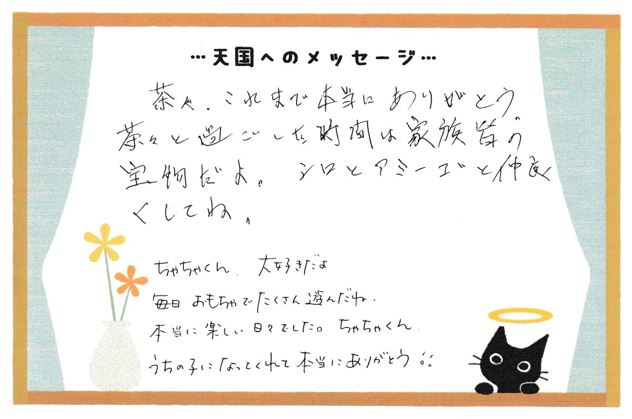 …天国へのメッセージ…
茶々、これまで本当にありがとう
茶々と過ごした時間は家族皆の
宝物だよ。シロとアミーゴと仲良
くしてね。
ちゃちゃくん、大好きだよ
毎日おもちゃでたくさん遊んだね。
本当に楽しい日々でした。ちゃちゃくん、
うちの子になってくれて本当にありがとう!!